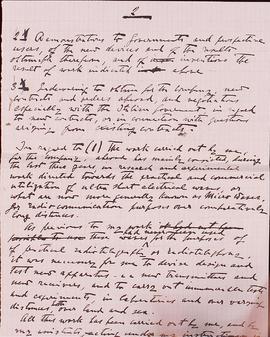 2
2. Demonstrations to Governments and prospective
users, of the new devices and of the results
obtainable therefrom, and of inventions the
result of work indicated above
3. Endeavouring to obtain for the Company new
contracts and orders abroad, and negotiations
especially with the Italian Government in regard
to new contracts, or in connection with questions
arising from existing contracts.
In regard to (1) the work carried out by me
for the Company, abroad has mainly consisted, during
the last two years on research and experimental
work directed towards the practical and commercial
utilization of ultra short electrical waves, or
what are now more generally known as Micro Waves,
for radiocommunication purposes over comparatively
long distances.
As previous to my work
these waves for the purposes of
of practical radiotelegraphy or radiotelephony,
it was necessary for me to devise design and
test new apparatus, i.e. new transmitters and
new receivers, and to carry out innumerable tests
and experiments, in laboratories and over varying
distances, both over land and sea.
All this work has been carried out by me, and by
my assistants acting under my instructions